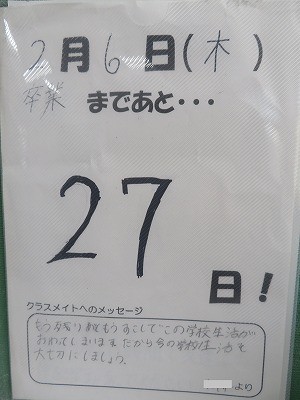 2月6日(木)
卒業 まであと・・・
27
日!
クラスメイトへのメッセージ
もう残りもうすこしでこの学校生活が
おわってしまいます。だから今の学校生活を
大切にしましょう。
より